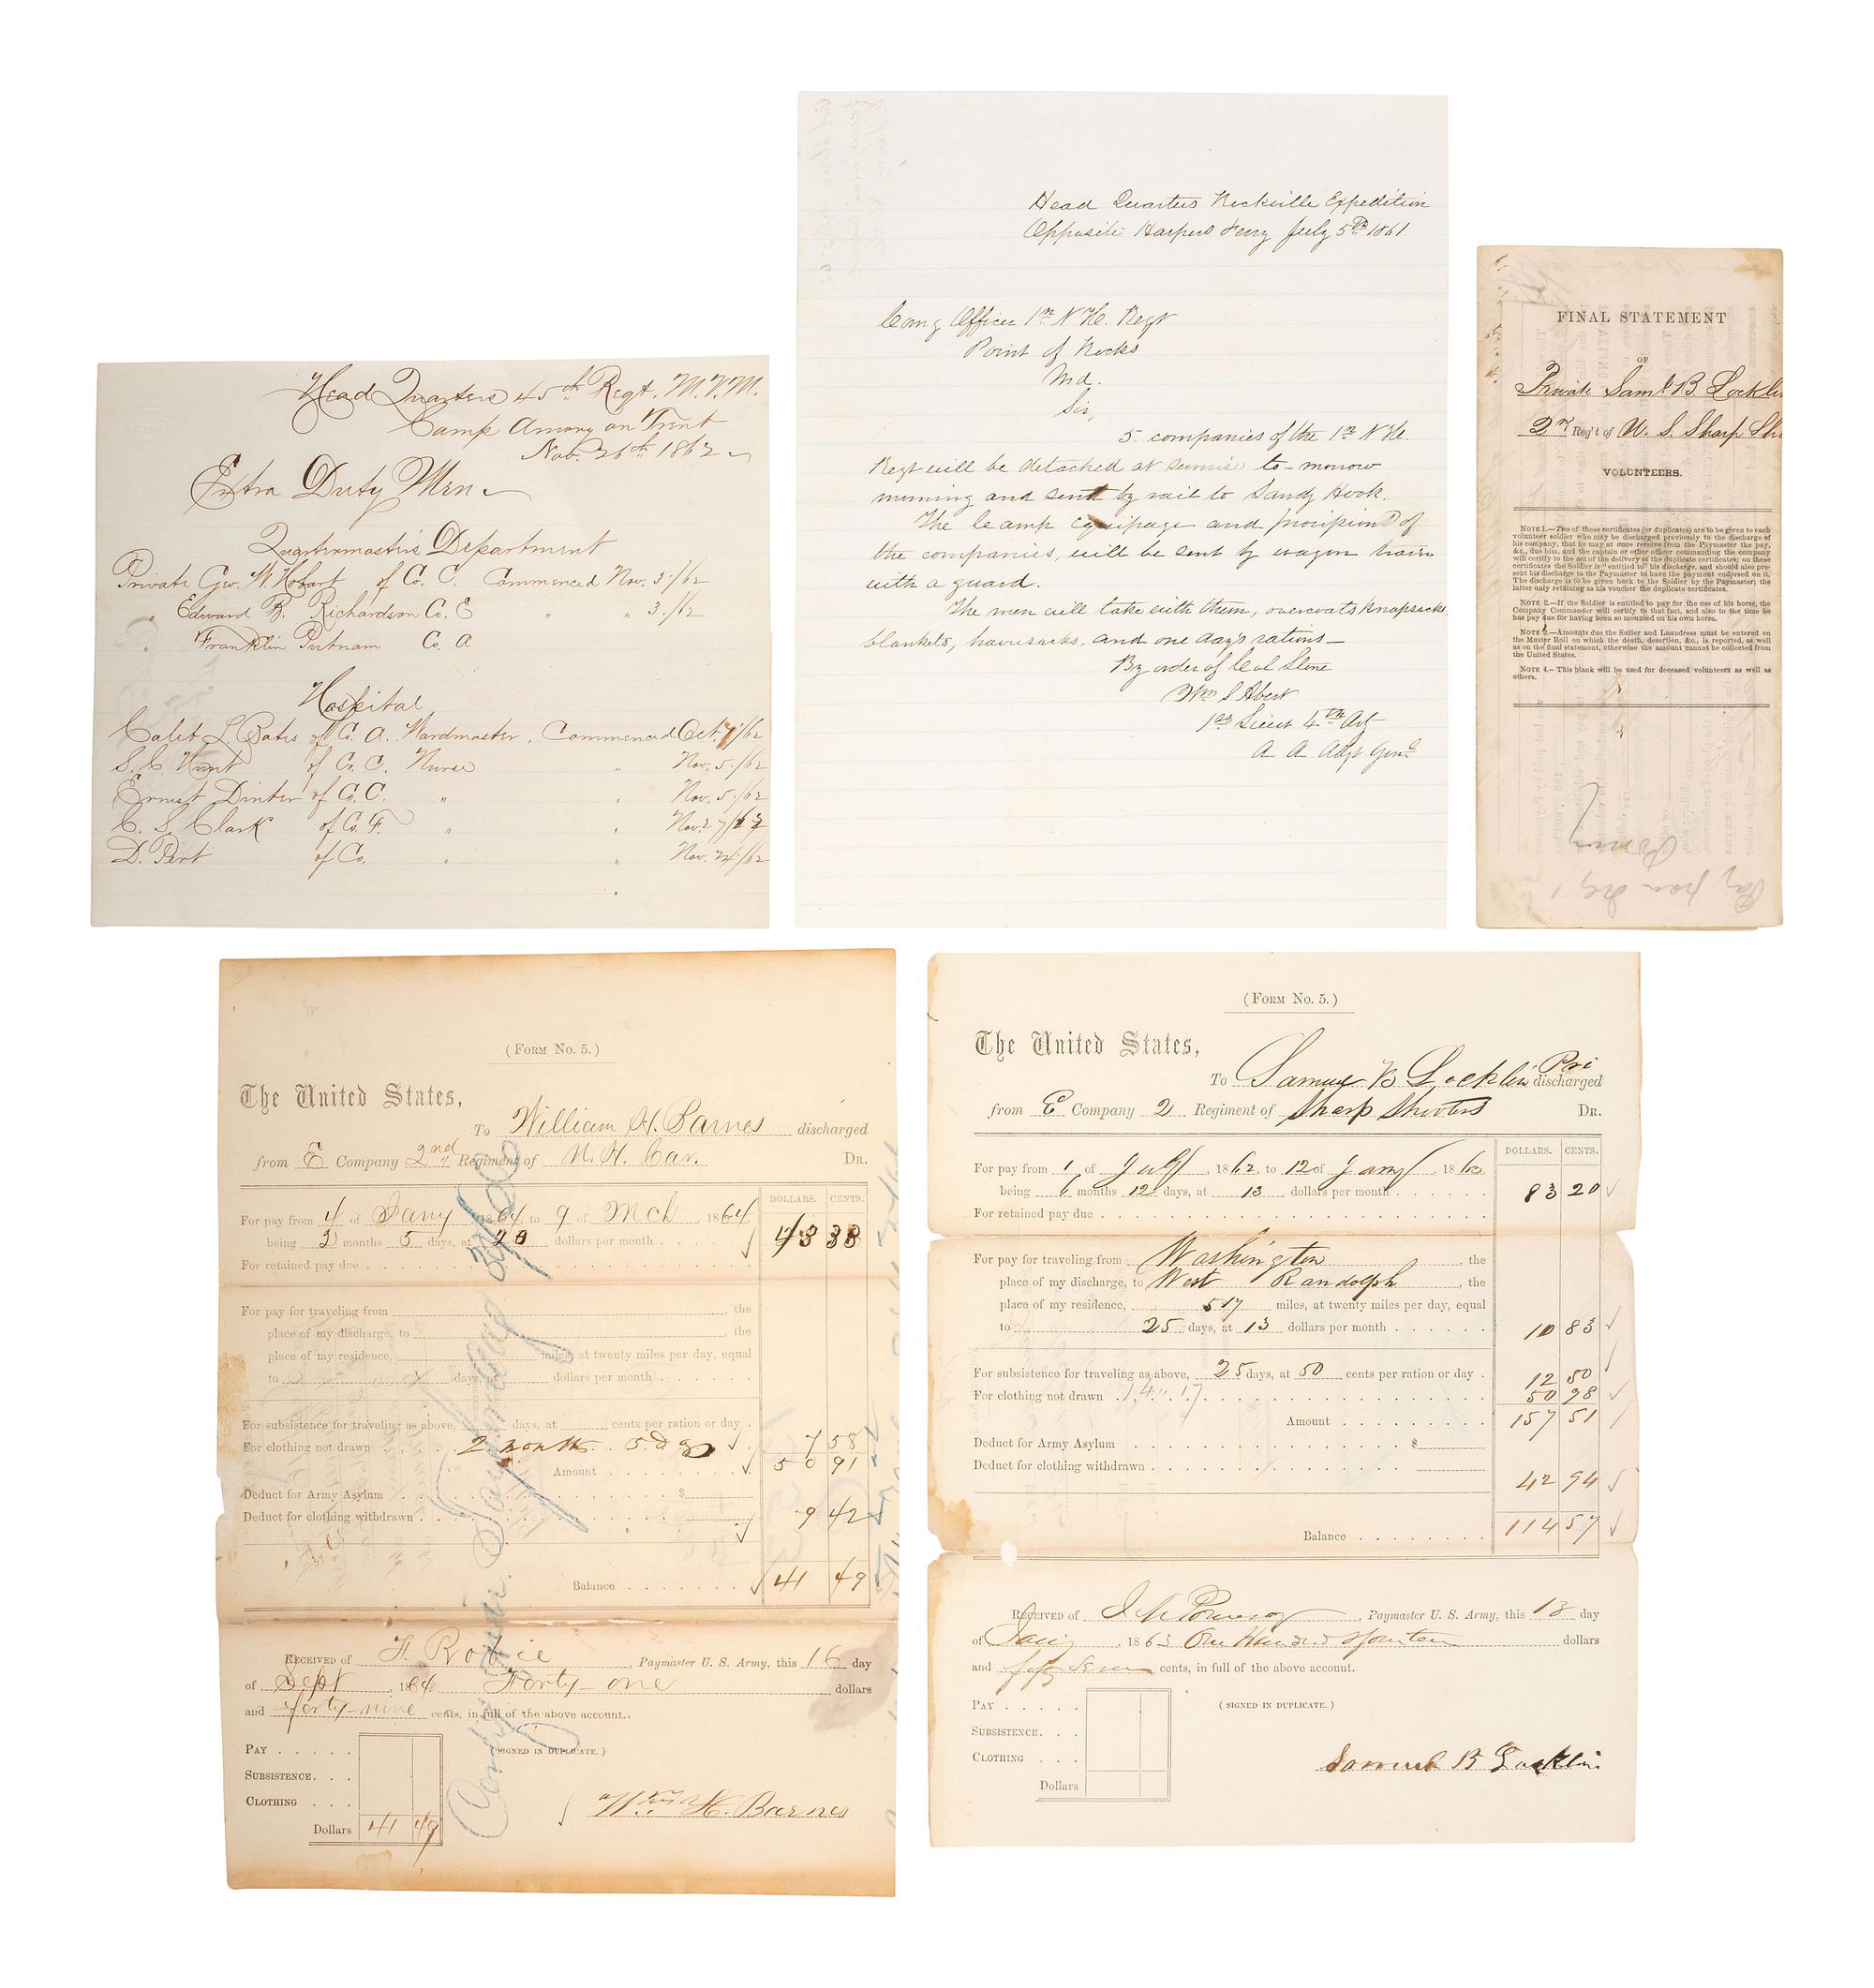 Head Quarters 45th Regt. M.V.M.
Camp Amory on Trent
Nov. 26th 1862
Extra Duty Men
Quartermaster's Department
Private Geo. W. Hobart of Co. C. Commenced Nov. 3./62
" Edward B. Richardson Co. E " " 3./62
" Franklin Putnam Co. A
Hospital
Caleb L. Bates of Co. A. Wardmaster. Commenced Oct. 7/62
S. C. Hunt of Co. C. Nurse " Nov. 5./62
Ernest Dinter of Co. C. " " Nov. 5./62
C. S. Clark of Co. F. " " Nov. 27/62
D. of Co. " " Nov. 24./62
Head Quarters Rockville Expedition
Opposite Harpers Ferry July 5th 1861
Comg Officer 1st N H. Regt
Point of Rocks
Md.
Sir,
5 companies of the 1st N H.
Regt will be detached at sunrise to-morrow
morning and sent by rail to Sandy Hook.
The Camp equipage and provisions of
the companies, will be sent by wagon train
with a guard.
The men will take with them, overcoats knapsacks,
blankets, haversacks, and one day's rations—
By order of Col Stone
Wm S Abert
1st Lieut 4th Art
A A Adjt Genl
FINAL STATEMENT
OF
Private Saml B. Locklin
2nd Reg't of U. S. Sharp Sho
VOLUNTEERS.
NOTE 1.—Two of these certificates (or duplicates) are to be given to each
volunteer soldier who may be discharged previously to the discharge of
his company, that he may at once receive from the Paymaster the pay,
&c., due him, and the captain or other officer commanding the company
will certify to the act of the delivery of the duplicate certificates; on these
certificates the Soldier is "entitled to" his discharge, and should also pre-
sent his discharge to the Paymaster to have the payment endorsed on it.
The discharge is to be given back to the Soldier by the Paymaster; the
latter only retaining as his voucher the duplicate certificates.
NOTE 2.—If the Soldier is entitled to pay for the use of his horse, the
Company Commander will certify to that fact, and also to the time he
has pay due for having been so mounted on his own horse.
NOTE 3.—Amounts due the Sutler and Laundress must be entered on
the Muster Roll on which the death, desertion, &c., is reported, as well
as on the final statement, otherwise the amount cannot be collected from
the United States.
NOTE 4.—This blank will be used for deceased volunteers as well as
others.
(FORM No. 5.)
The United States,
To William H. Barnes discharged
from E Company 2nd Regiment of N. H. Cav. DR.
DOLLARS. CENTS.
For pay from 4 of Jany 1864 to 9 of Mch, 1864
being 2 months 5 days, at 20 dollars per month 43 33
For retained pay due
For pay for traveling from , the
place of my discharge, to , the
place of my residence, miles, at twenty miles per day, equal
to days, at dollars per month
For subsistence for traveling as above, days, at cents per ration or day
For clothing not drawn 2 months 5 days 7 58
Amount 50 91
Deduct for Army Asylum $
Deduct for clothing withdrawn 9 42
Balance 41 49
RECEIVED of F. Robie, Paymaster U. S. Army, this 16 day
of Sept, 1864 Forty-one dollars
and forty-nine cents, in full of the above account.
PAY
(SIGNED IN DUPLICATE.)
SUBSISTENCE.
CLOTHING
Wm H. Barnes
Dollars 41 49
(FORM No. 5.)
The United States,
To Samuel B Locklin Pri discharged
from E Company 2 Regiment of Sharp Shooters DR.
DOLLARS. CENTS.
For pay from 1 of July, 1862, to 12 of Jany, 1863
being 6 months 12 days, at 13 dollars per month 83 20
For retained pay due
For pay for traveling from Washington, the
place of my discharge, to West Randolph, the
place of my residence, 517 miles, at twenty miles per day, equal
to 25 days, at 13 dollars per month 10 83
For subsistence for traveling as above, 25 days, at 50 cents per ration or day 12 50
For clothing not drawn 14 " 17 50 98
Amount 157 51
Deduct for Army Asylum $
Deduct for clothing withdrawn
42 94
Balance 114 57
RECEIVED of J W Pomeroy, Paymaster U. S. Army, this 13 day
of Jany, 1863 One Hundred & fourteen dollars
and fifty seven cents, in full of the above account.
PAY
(SIGNED IN DUPLICATE.)
SUBSISTENCE.
CLOTHING
Samuel B Locklin
Dollars